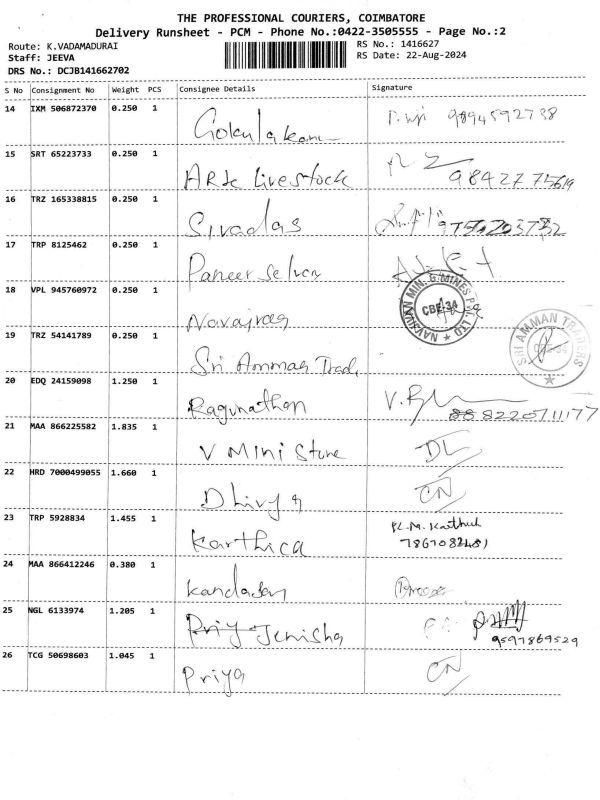 THE PROFESSIONAL COURIERS, COIMBATORE
Delivery Runsheet - PCM - Phone No.:0422-3505555 - Page No.:2
Route: K.VADAMADURAI
RS No.: 1416627
Staff: JEEVA
RS Date: 22-Aug-2024
DRS No.: DCJB141662702
S No Consignment No Weight PCS Consignee Details Signature
14 IXM 506872370 0.250 1 Gokulakan 9894592738
15 SRT 65223733 0.250 1 ARK Livestock
16 TRZ 165338815 0.250 1 Sivadas
17 TRP 8125462 0.250 1 Paneer Selvan
18 VPL 945760972 0.250 1 Navajrag
NAVJIVAN MIN. & MINES PVT. LTD CBE-34
19 TRZ 54141789 0.250 1 Sri Amman Trad,
SRI AMMAN TRADERS
20 EDQ 24159098 1.250 1 Ragunathan
21 MAA 866225582 1.835 1 V Mini Stone DL
22 HRD 7000499055 1.660 1 Dhivya CN
23 TRP 5928834 1.455 1 Karthica
24 MAA 866412246 0.380 1 Kandasan
25 NGL 6133974 1.205 1 Jenisha 9597869529
26 TCG 50698603 1.045 1 Priya CN